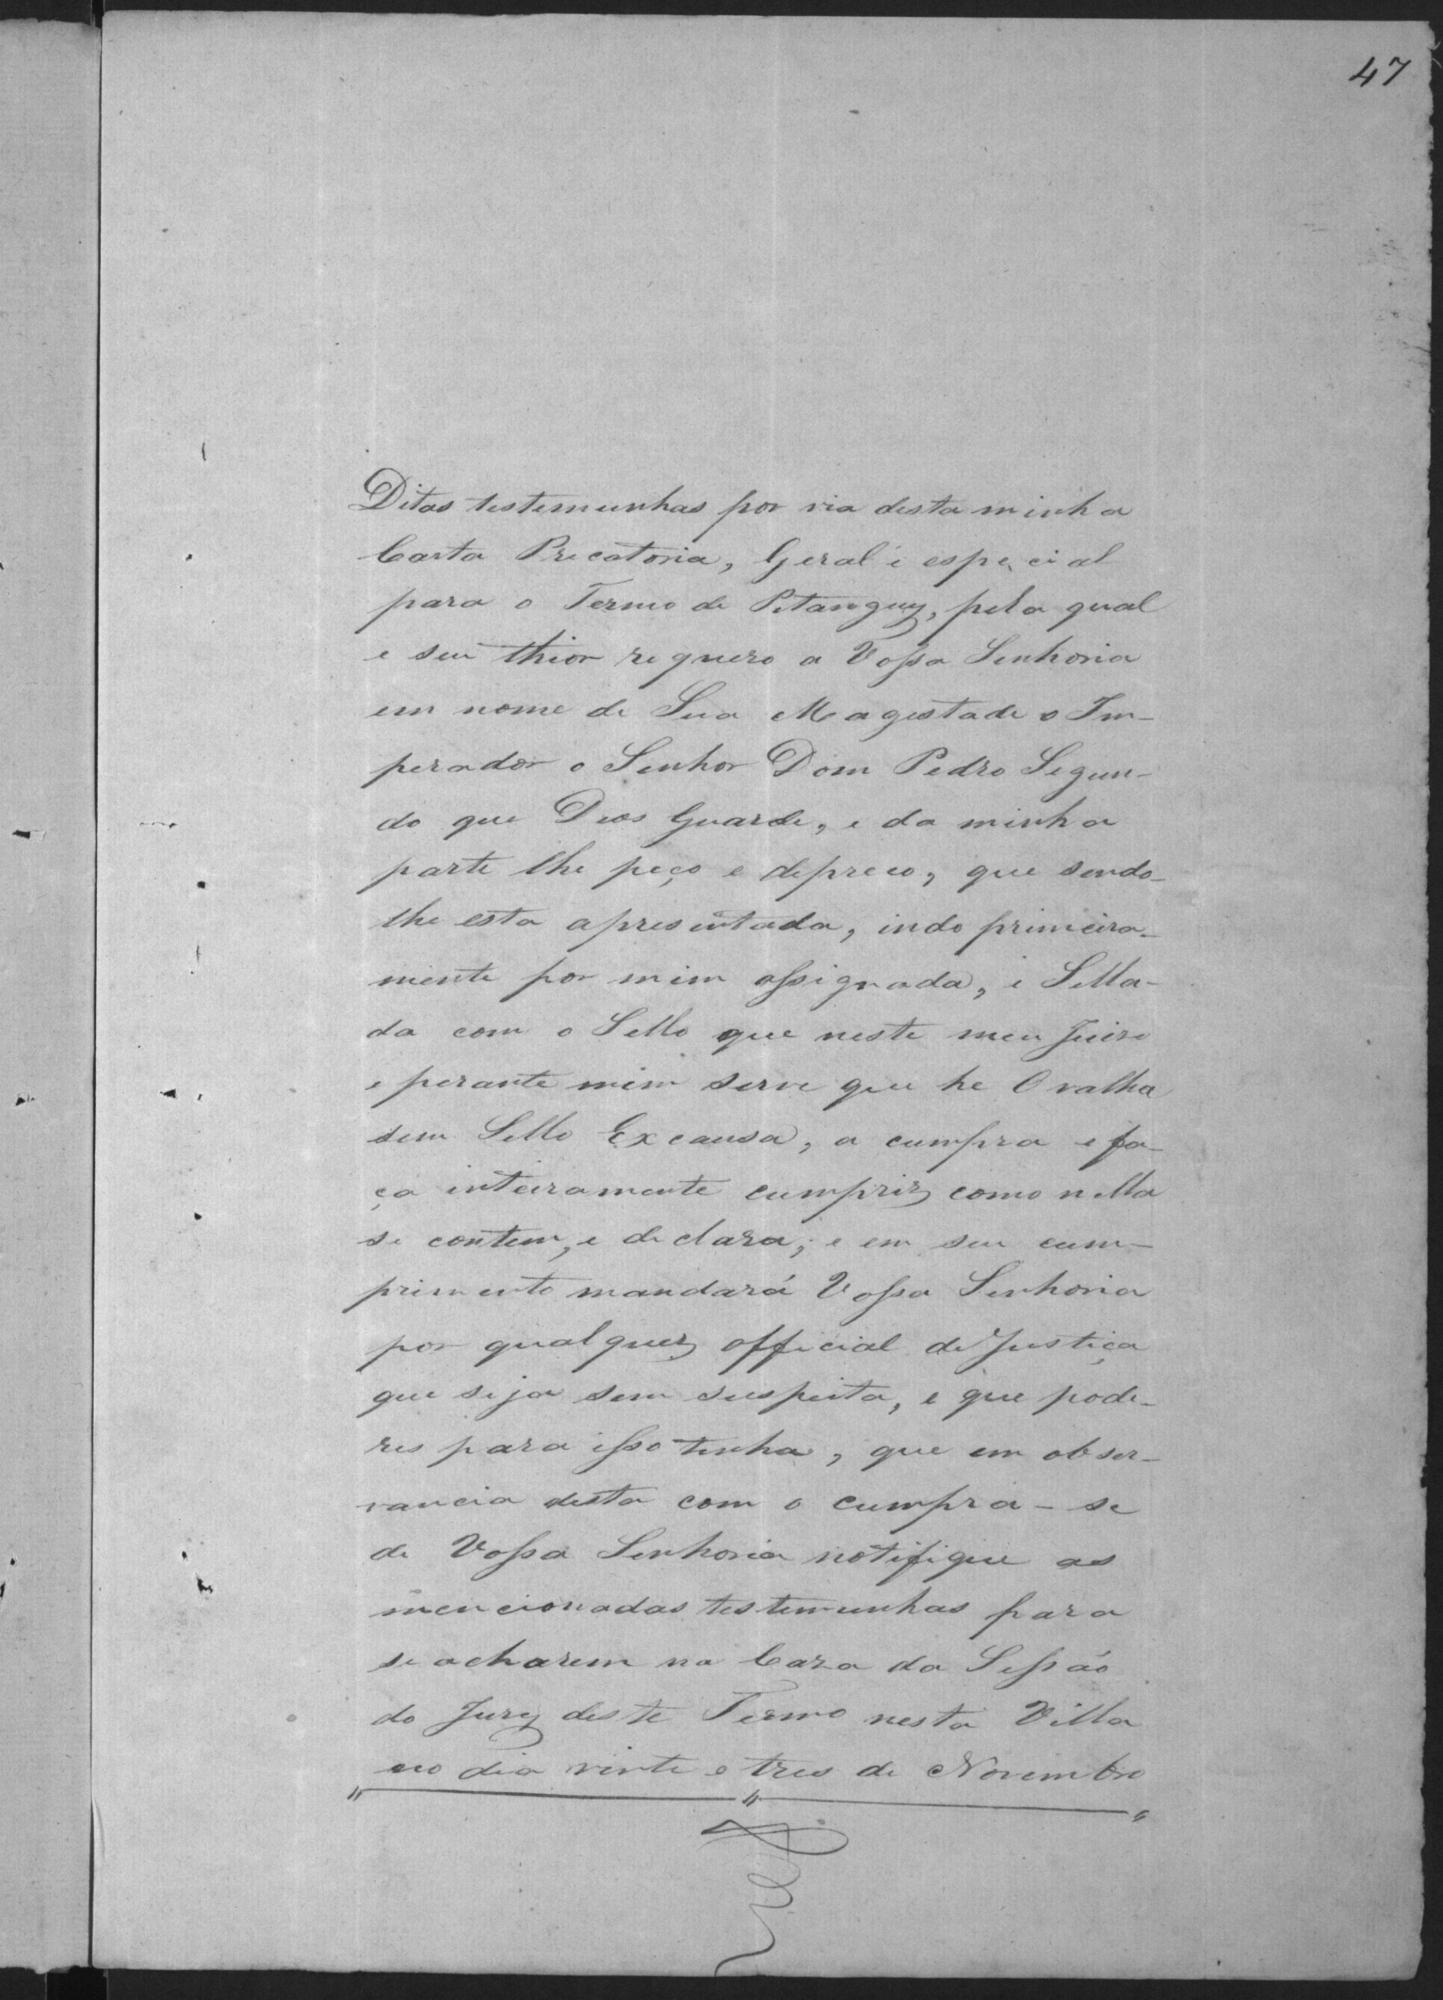 47
Ditas testemunhas por via desta minha
Carta Precatoria, Geral é especial
para o Termo de Pitanguy, pela qual
e seu thior requero a Vossa Senhoria
em nome de Sua Magestade o Im-
perador o Senhor Dom Pedro Segun-
do que Deos Guarde, e da minha
parte lhe peço e depreco, que sendo-
lhe esta apresentada, indo primeira-
mente por mim assignada, e Sella-
da com o Sello que neste meu Juizo
e perante mim serve que he O valha
sem Sello Excausa, a cumpra e fa-
ça inteiramente cumprir como nella
se contem, e declara, e em seu cum-
primento mandará Vossa Senhoria
por qualquer official de Justiça
que seja sem suspeita, e que pode-
res para isso tenha, que em obser-
vancia desta com o cumpra-se
de Vossa Senhoria notifique as
mencionadas testemunhas para
se acharem na Caza da Sessão
do Jury deste Termo nesta Villa
no dia vinte e tres de Novembro